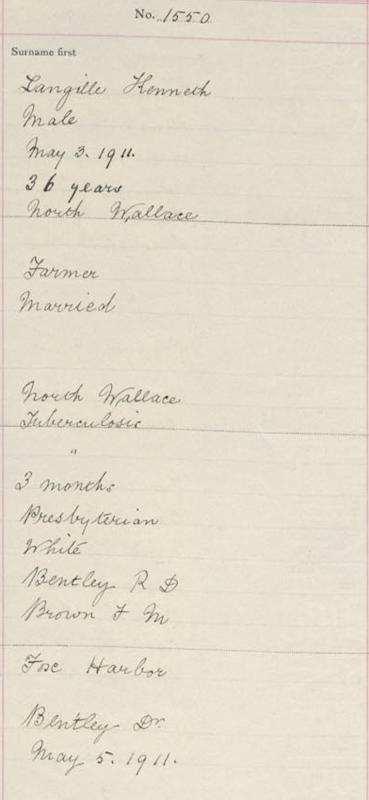 No. 1550
Surname first
Langille Kenneth
Male
May 3. 1911.
36 years
North Wallace
Farmer
Married
North Wallace
Tuberculosis
"
3 months
Presbyterian
White
Bentley R D
Brown F M
Fox Harbor
Bentley Dr.
May 5. 1911.